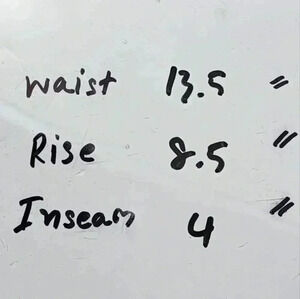 waist 13.5 "
Rise 8.5 "
Inseam 4 "